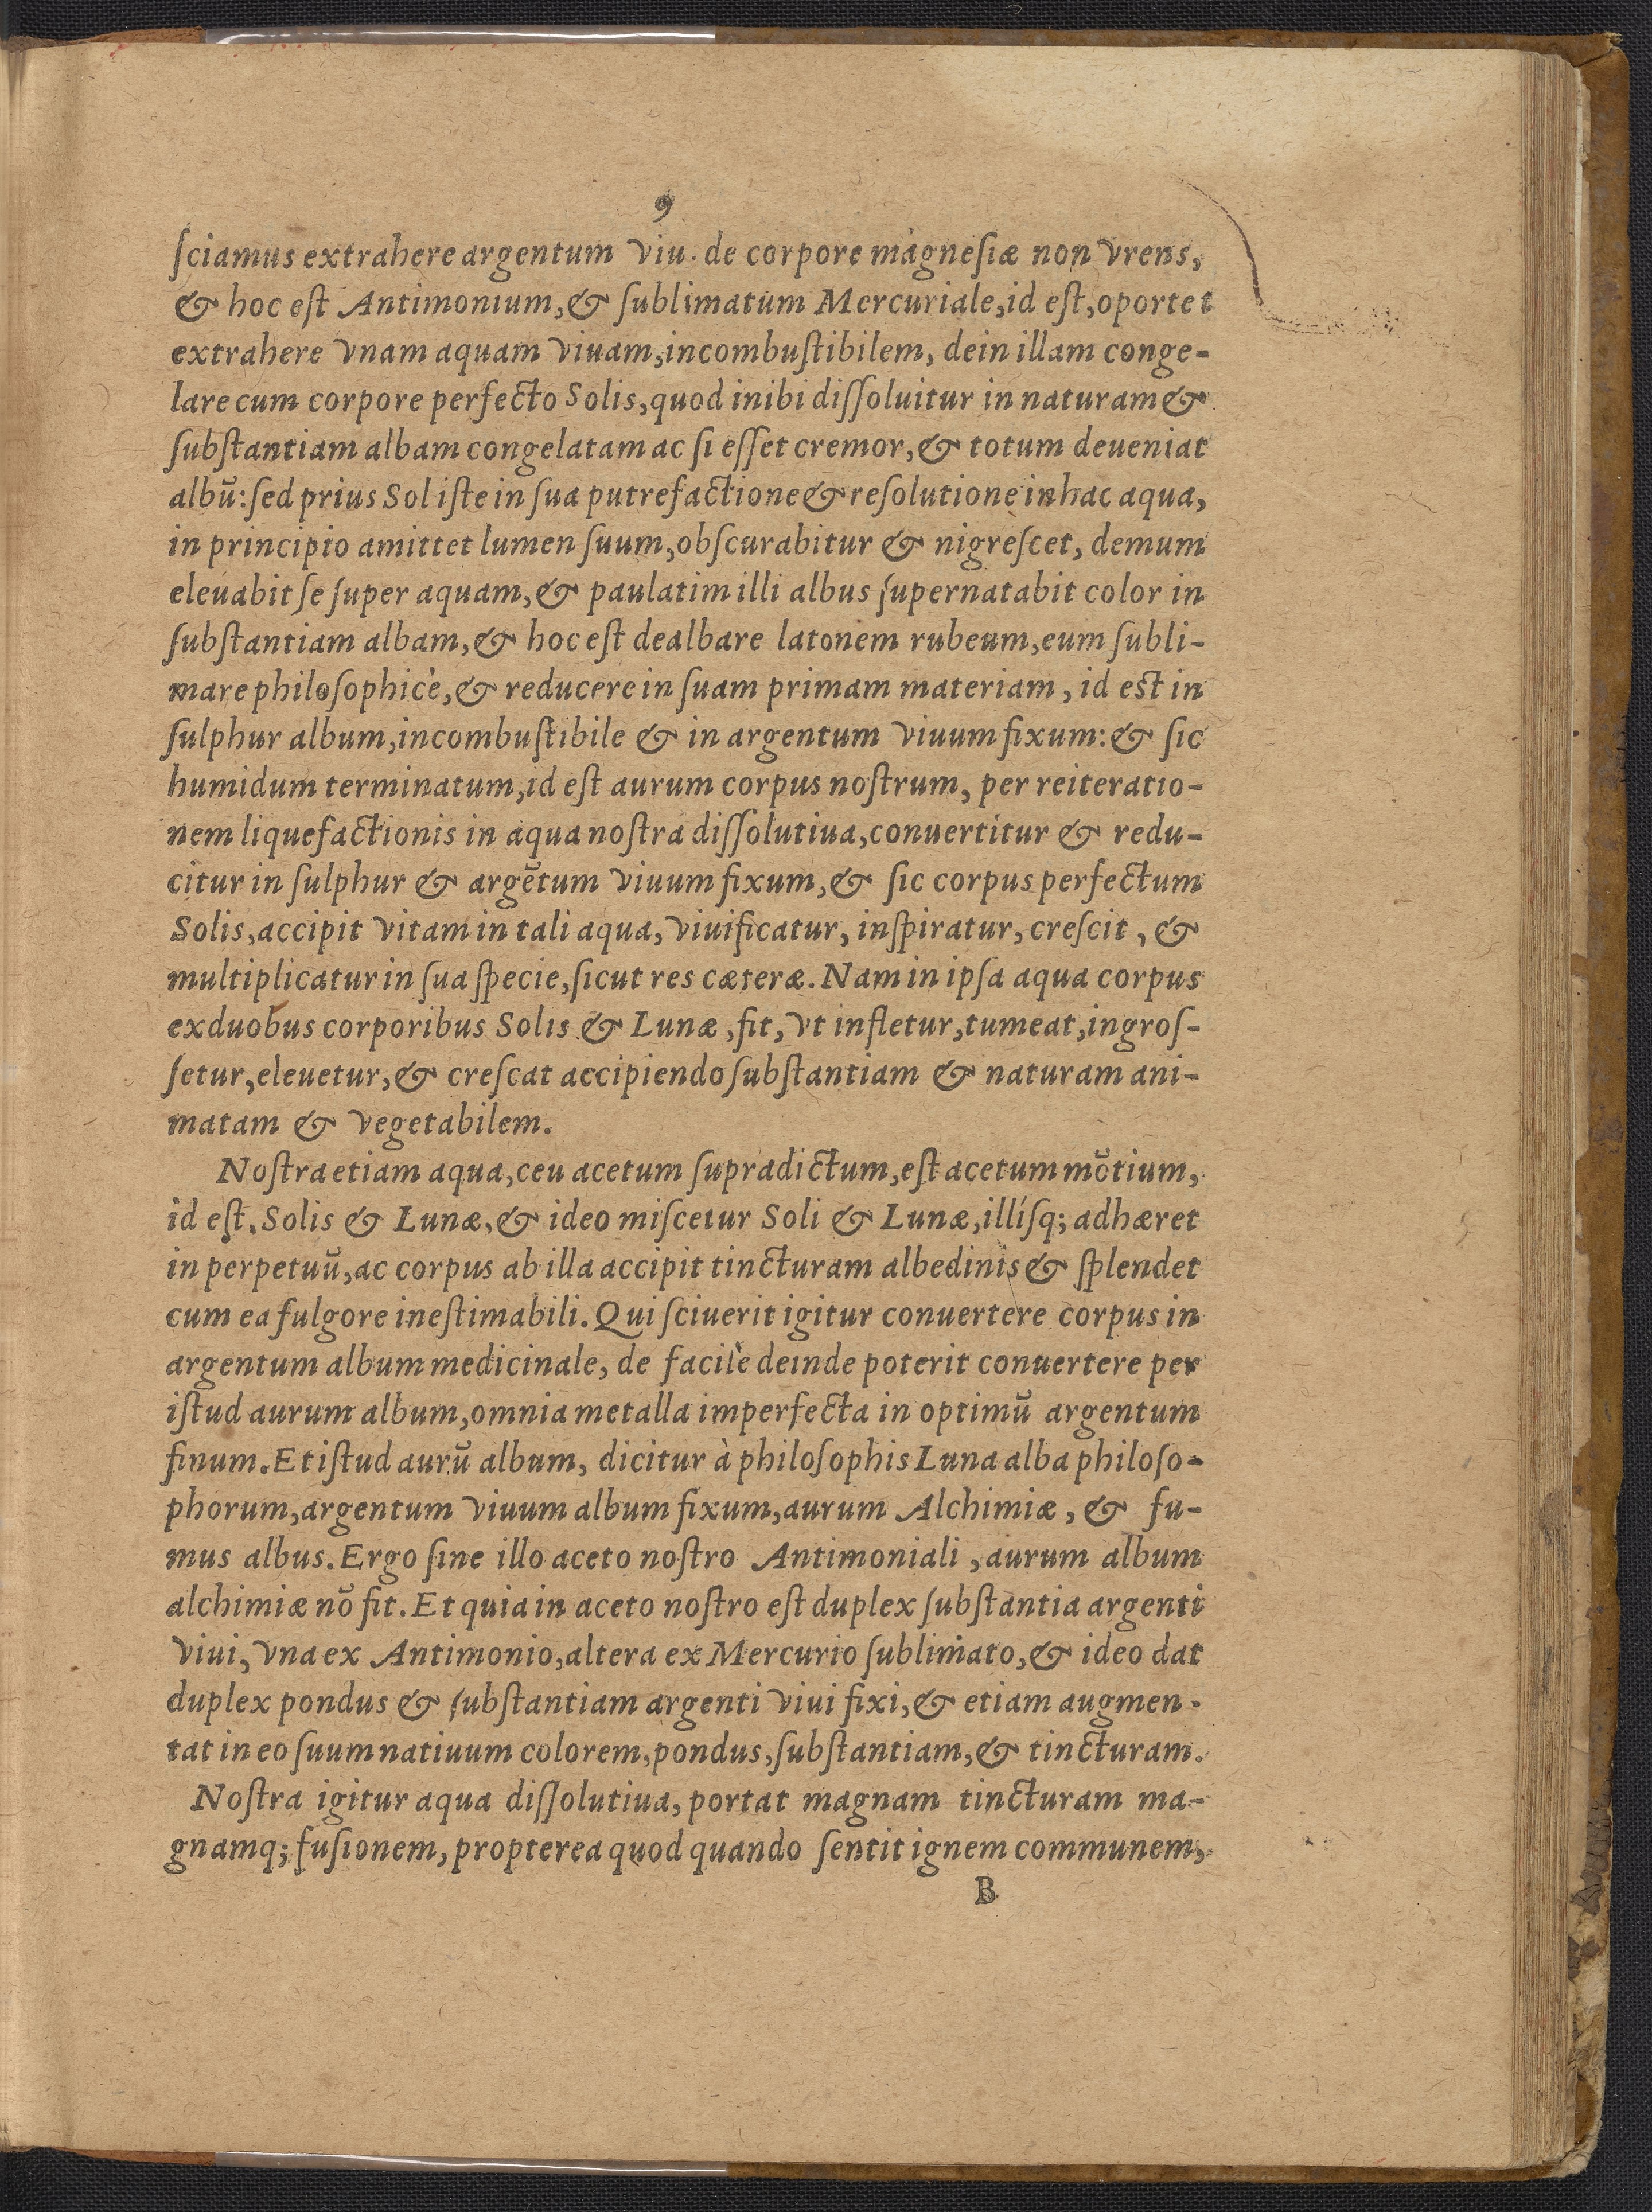 9
ſciamus extrahere argentum viu. de corpore magneſiæ non vrens,
& hoc eſt Antimonium, & ſublimatum Mercuriale, id eſt, oportet
extrahere vnam aquam viuam, incombuſtibilem, dein illam conge-
lare cum corpore perfecto Solis, quod inibi diſſoluitur in naturam &
ſubſtantiam albam congelatam ac ſi eſſet cremor, & totum deueniat
albū: ſed prius Sol iſte in ſua putrefactione & reſolutione in hac aqua,
in principio amittet lumen ſuum, obſcurabitur & nigreſcet, demum
eleuabit ſe ſuper aquam, & paulatim illi albus ſupernatabit color in
ſubſtantiam albam, & hoc eſt dealbare latonem rubeum, eum ſubli-
mare philoſophicè, & reducere in ſuam primam materiam, id est in
ſulphur album, incombuſtibile & in argentum viuum fixum: & ſic
humidum terminatum, id eſt aurum corpus noſtrum, per reiteratio-
nem liquefactionis in aqua noſtra diſſolutiua, conuertitur & redu-
citur in ſulphur & argētum viuum fixum, & ſic corpus perfectum
Solis, accipit vitam in tali aqua, viuificatur, inſpiratur, creſcit, &
multiplicatur in ſua ſpecie, ſicut res cæteræ. Nam in ipſa aqua corpus
ex duobus corporibus Solis & Lunæ, fit, vt infletur, tumeat, ingroſ-
ſetur, eleuetur, & creſcat accipiendo ſubſtantiam & naturam ani-
matam & vegetabilem.
Noſtra etiam aqua, ceu acetum ſupradictum, eſt acetum mōtium,
id eſt, Solis & Lunæ, & ideo miſcetur Soli & Lunæ, illíſq; adhæret
in perpetuū, ac corpus ab illa accipit tincturam albedinis & ſplendet
cum ea fulgore ineſtimabili. Qui ſciuerit igitur conuertere corpus in
argentum album medicinale, de facilè deinde poterit conuertere per
iſtud aurum album, omnia metalla imperfecta in optimū argentum
finum. Et iſtud aurū album, dicitur à philoſophis Luna alba philoſo-
phorum, argentum viuum album fixum, aurum Alchimiæ, & fu-
mus albus. Ergo ſine illo aceto noſtro Antimoniali, aurum album
alchimiæ nō fit. Et quia in aceto noſtro eſt duplex ſubſtantia argenti
viui, vna ex Antimonio, altera ex Mercurio ſublimato, & ideo dat
duplex pondus & ſubſtantiam argenti viui fixi, & etiam augmen-
tat in eo ſuum natiuum colorem, pondus, ſubſtantiam, & tincturam.
Noſtra igitur aqua diſſolutiua, portat magnam tincturam ma-
gnamq; fuſionem, propterea quod quando ſentit ignem communem,
B